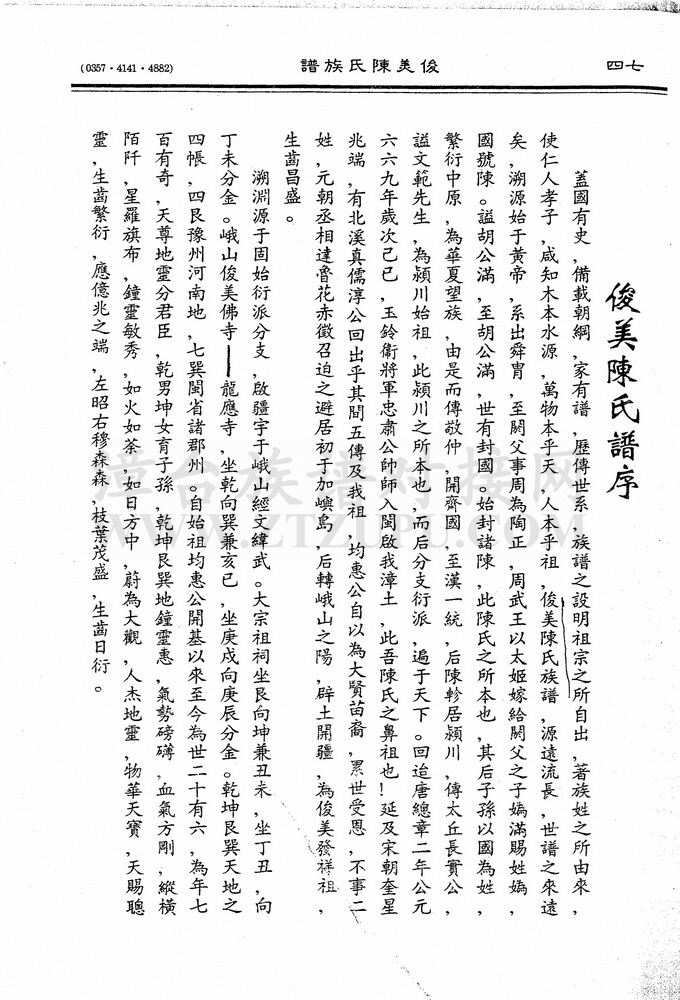 (0357·4141·4882)
譜族氏陳美俊
四七
俊美陳氏譜序
蓋國有史,備載朝綱,家有譜,歷傳世系,族譜之設明祖宗之所自出,著族姓之所由來,
使仁人孝子,咸知木本水源,萬物本乎天,人本乎祖,俊美陳氏族譜,源遠流長,世譜之來遠
矣,溯源始于黃帝,系出舜胄,至閼父事周為陶正,周武王以太姬嫁給閼父之子媯滿賜姓媯,
國號陳。謚胡公滿,至胡公滿,世有封國。始封諸陳,此陳氏之所本也,其后子孫以國為姓,
繁衍中原,為華夏望族,由是而傳敬仲,開齊國,至漢一統,后陳軫居潁川,傳太丘長實公,
謚文範先生,為潁川始祖,此潁川之所本也,而后分支衍派,遍于天下。回追唐總章二年公元
六六九年歲次己巳,玉鈴衛將軍忠肅公帥師入閩啟我漳土,此吾陳氏之鼻祖也!延及宋朝奎星
兆端,有北溪真儒淳公回出乎其間五傳及我祖,均惠公自以為大賢苗裔,累世受恩,不事二
姓,元朝丞相達魯花赤徵召迫之避居初于加嶼島,后轉峨山之陽,辟土開疆,為俊美發祥祖,
生齒昌盛。
溯淵源于固始衍派分支,啟疆宇于峨山經文緯武。大宗祖祠坐艮向坤兼丑未,坐丁丑,向
丁未分金。峨山俊美佛寺——龍應寺,坐乾向巽兼亥巳,坐庚戌向庚辰分金。乾坤艮巽天地之
四帳,四艮豫州河南地,七巽閩省諸郡州。自始祖均惠公開基以來至今為世二十有六,為年七
百有奇,天尊地靈分君臣,乾男坤女育子孫,乾坤艮巽地鐘靈惠,氣勢磅礡,血氣方剛,縱橫
陌阡,星羅旗布,鐘靈敏秀,如火如荼,如日方中,蔚為大觀,人杰地靈,物華天寶,天賜聰
靈,生齒繁衍,應億兆之端,左昭右穆森森,枝葉茂盛,生齒日衍。
漳台族谱对接网
WWW.ZTZUPU.COM